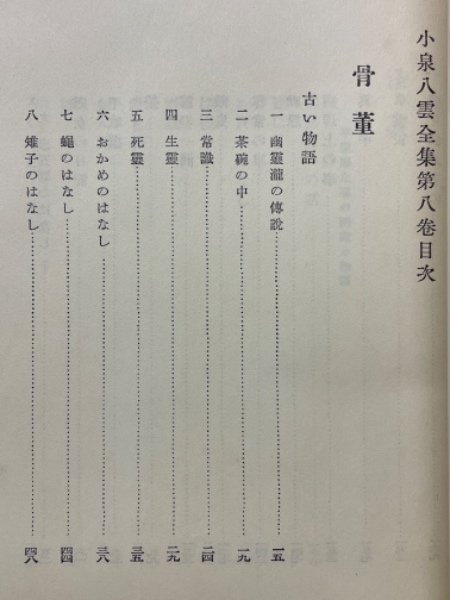 小泉八雲全集第八卷目次
骨董
古い物語
一 幽靈瀧の傳說 一五
二 茶碗の中 一九
三 常識 二四
四 生靈 二九
五 死靈 三五
六 おかめのはなし 三八
七 蠅のはなし 四四
八 雉子のはなし 四八